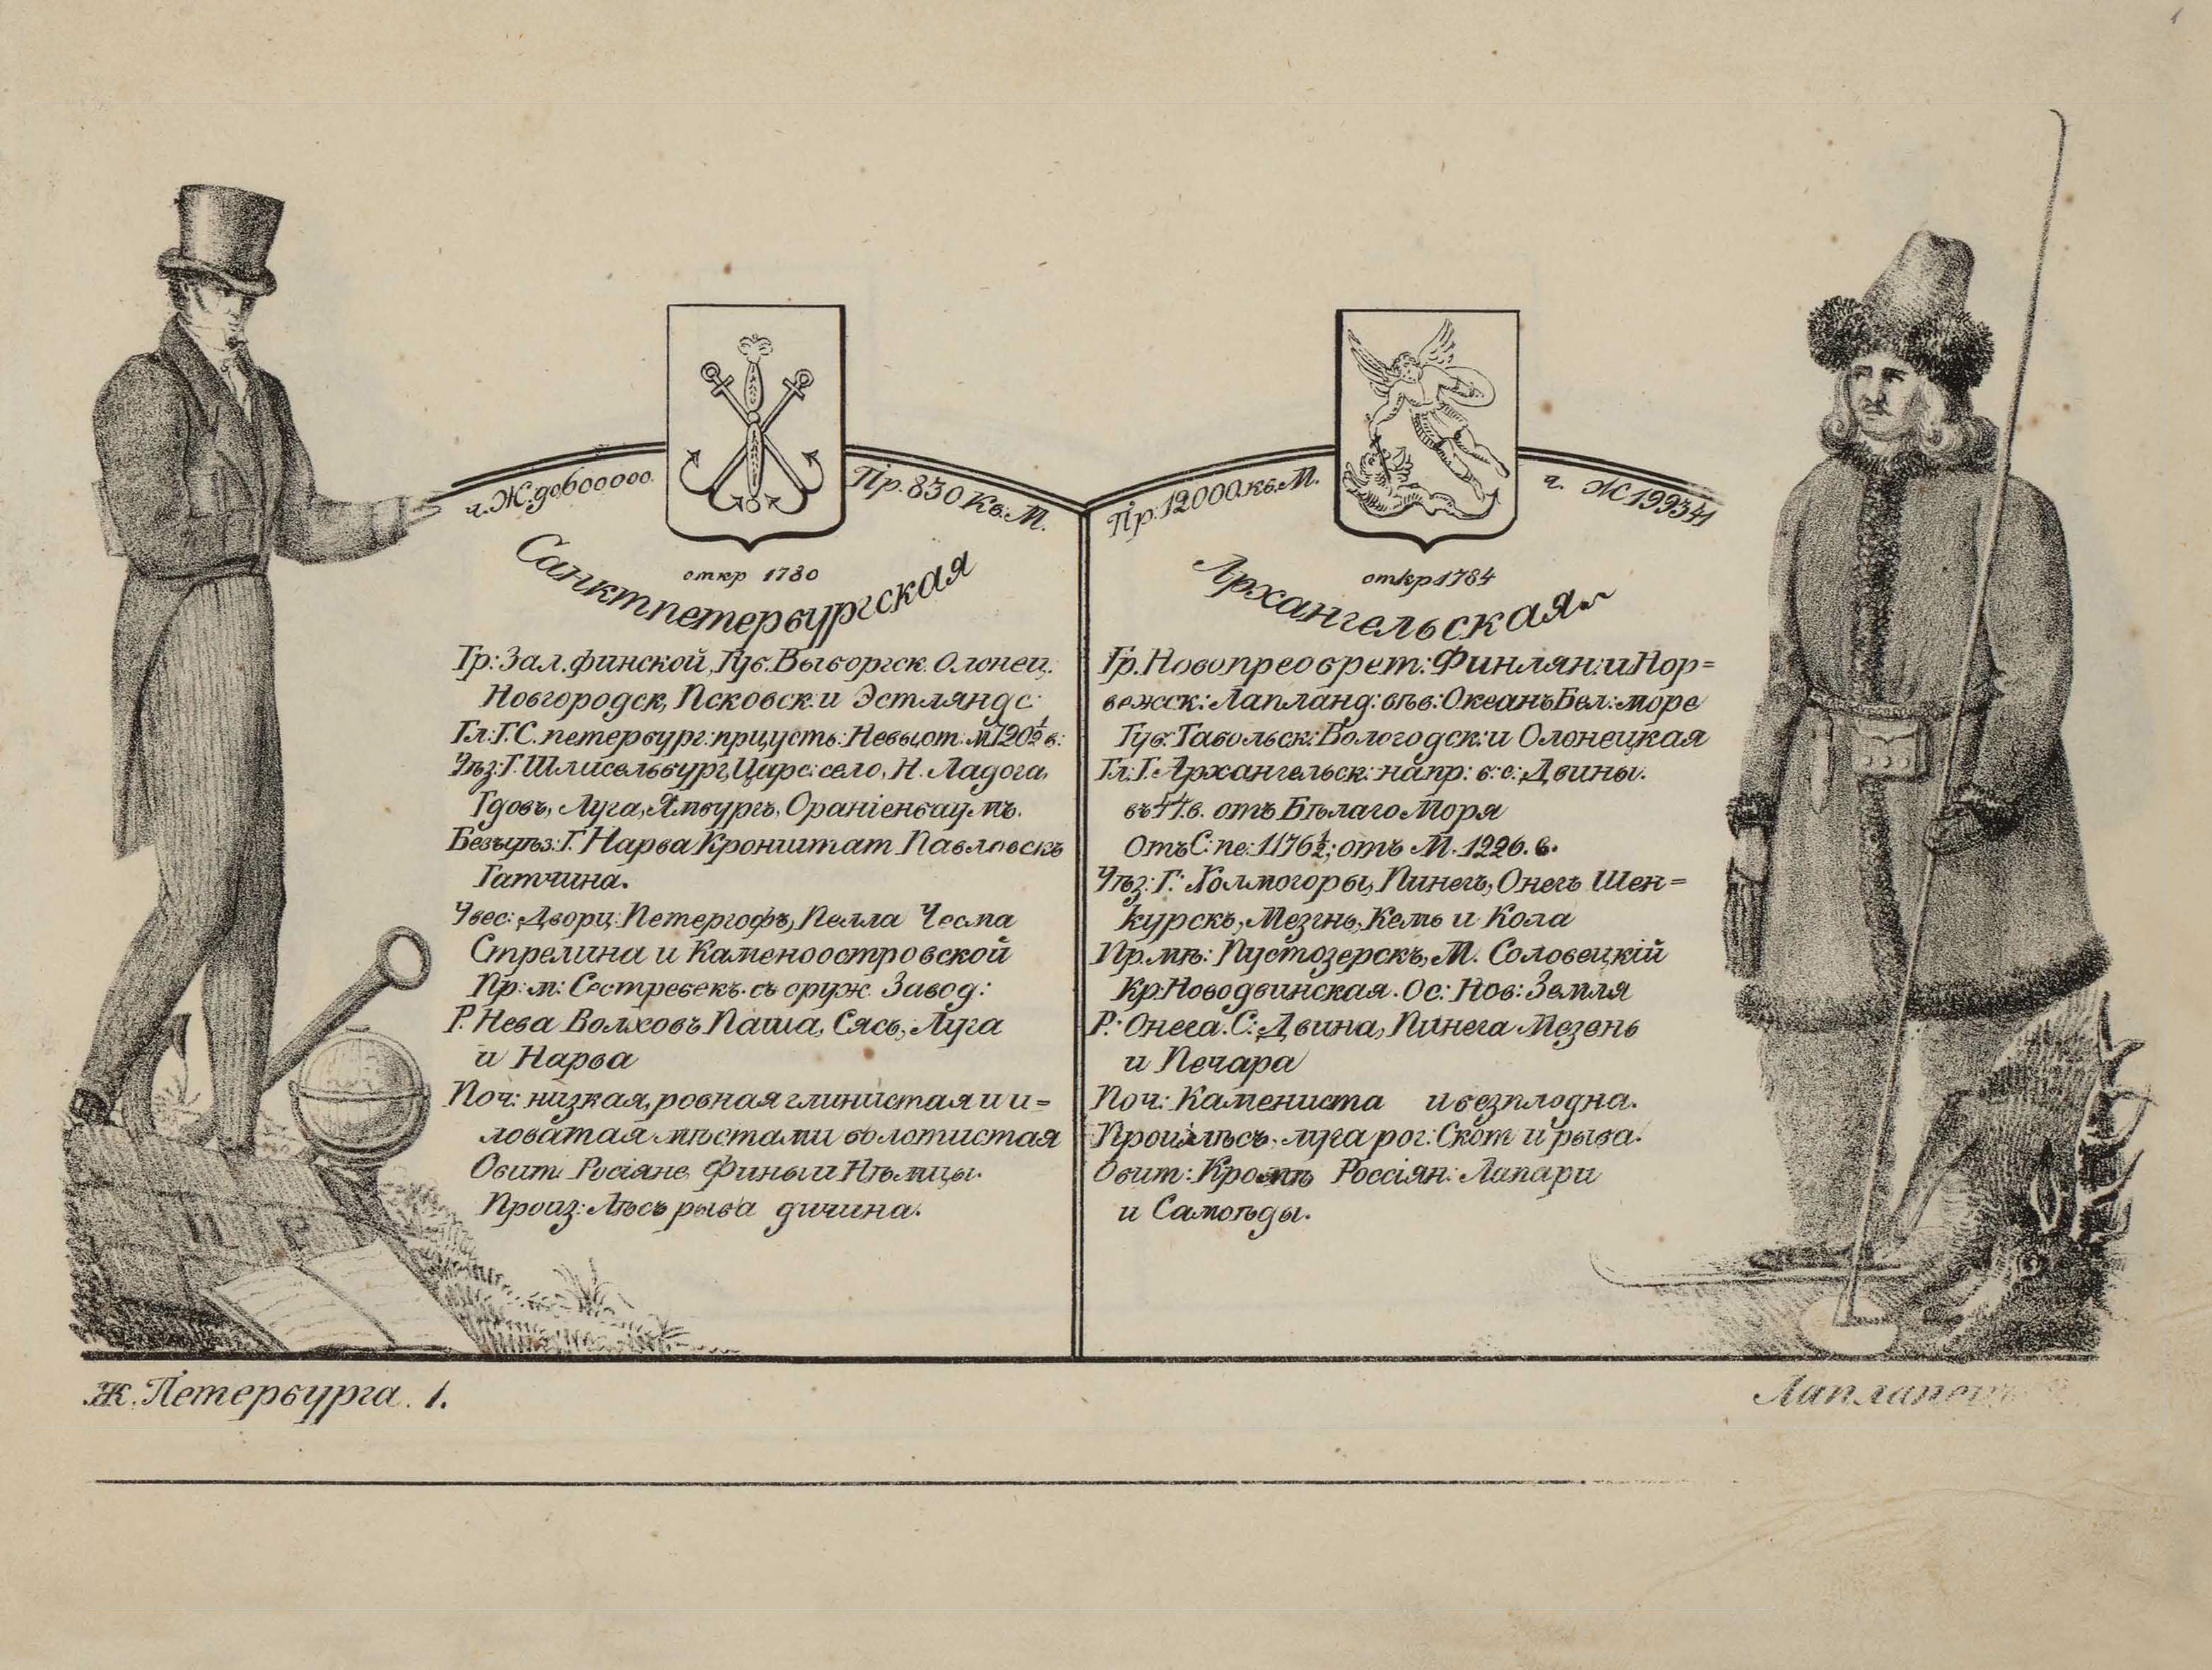 ч. Ж. до 600000.
Пр. 830 Кв. М.
откр 1780
Санктпетербургская
Гр: Зал. финской, Губ. Выборгск. Олонец.
Новгородск, Псковск: и Эстляндс:
Гл: Г. С. петербург: при усть: Невы, от. М 720½ в:
Уѣз: Г. Шлисельбург, Царс: село, Н. Ладога,
Гдовъ, Луга, Ямбургъ, Ораніенбаумъ.
Безъуѣз: Г. Нарва Кронштат Павловскъ
Гатчина.
Увес: Дворц: Петергофъ, Пелла Чесма
Стрелина и Каменоостровской
Пр: м: Сестребекъ. съ оруж. Завод:
Р. Нева Волховъ Паша, Сясь, Луга
и Нарва
Поч: низкая, ровная глинистая и и=
ловатая мѣстами болотистая
Обит. Росіяне, Фины и Нѣмцы.
Произ: Лѣсъ рыба дичина.
Пр: 12000. кв. М.
ч. Ж 199341
откр 1784
Архангельская
Гр. Новопреобрет: Финлян: и Нор=
вежск: Лапланд: въ в: Океанъ Бел: море
Губ: Табольск: Вологодск: и Олонецкая
Гл: Г. Архангельск: на пр: б: с: Двины.
въ 47 в. отъ Бѣлаго Моря
Отъ С: пе: 1176½; отъ М. 1226. в.
Уѣз: Г: Холмогоры, Пинегъ, Онегъ Шен=
курскъ, Мезень, Кемь и Кола
Пр. мѣ: Пустозерскъ, М. Соловецкій
Кр. Новодвинская. Ос: Нов: Земля
Р: Онега. С: Двина, Пинега Мезень
и Печара
Поч: Камениста и безплодна.
Произ лѣсъ. луга рог: Скот и рыба.
Обит: Кромѣ Россіян: Лапари
и Самоѣды.
Ж. Петербурга. 1.